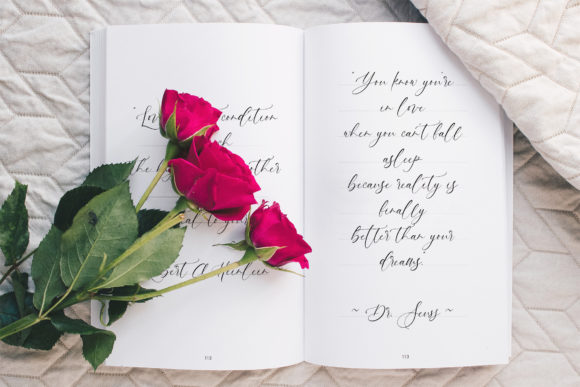 condition
the
to
A. Heinlein
113
"You know you're
in love
when you can't fall
asleep
because reality is
finally
better than your
dreams."
~ Dr. Seuss ~
113